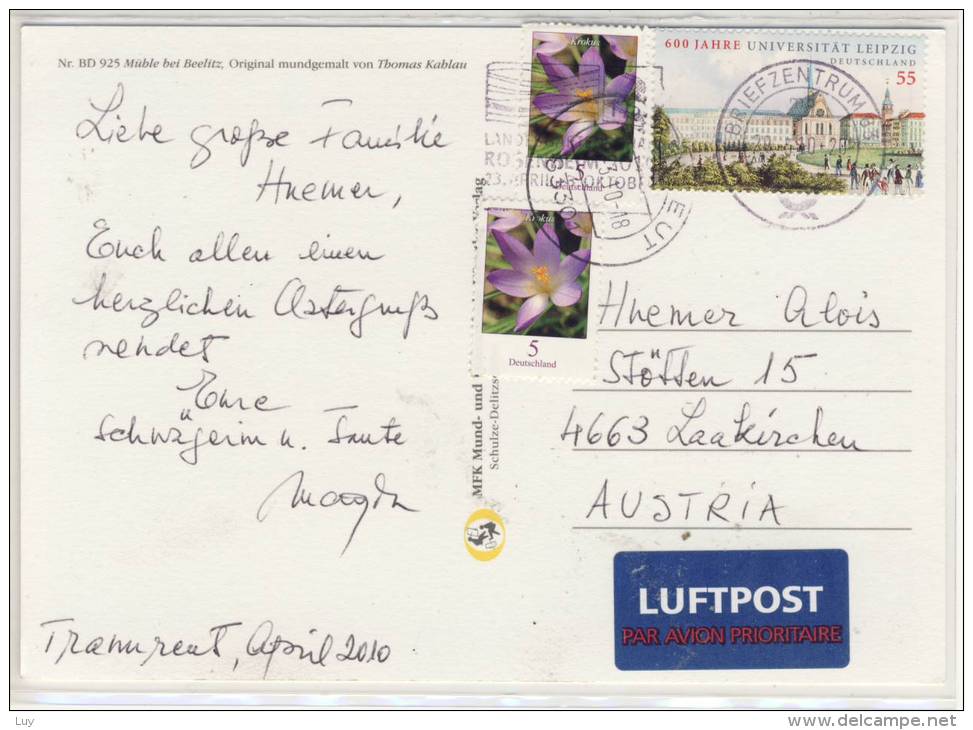 Nr. BD 925 Mühle bei Beelitz, Original mundgemalt von Thomas Kahlau
Liebe große Familie
Huemer,
Euch allen einen
herzlichen Ostergruß
sendet
Eure
Schwägerin u. Tante
Magda
Traunreut, April 2010
MFK Mund- und
Schulze-Delitzs
Verlag
Krokus
Deutschland
Krokus
5
Deutschland
600 JAHRE UNIVERSITÄT LEIPZIG
DEUTSCHLAND
55
BRIEFZENTRUM
23. APRIL
OKTOBE
Huemer Alois
Stötten 15
4663 Laakirchen
AUSTRIA
LUFTPOST
PAR AVION PRIORITAIRE
Luy
www.delcampe.net